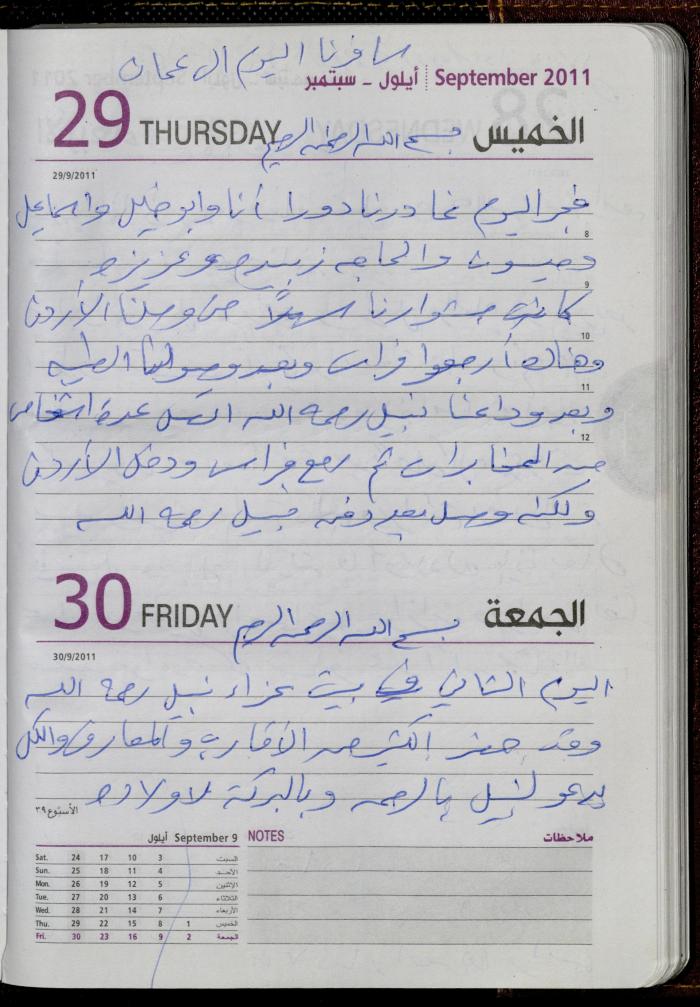 سافرنا اليوم الى عمان
September 2011 أيلول - سبتمبر
29 THURSDAY بسم الله الرحمن الرحيم الخميس
29/9/2011
فجر اليوم غادرنا دورا أنا وابو خليل واسماعيل
8
وميسون والحاجه زبيده وعزيزه
9
كانت مشوارنا سهلاً حتى وصلنا الأردن
10
وهناك أرجعوا فراس وبعد وصولنا
11
وبعد وداعنا نبيل رحمه الله اتصل عدة اشخاص
12
من المخابرات ثم رجع فراس ودخل الأردن
ولكنه وصل بعد دفن نبيل رحمه الله
30 FRIDAY بسم الله الرحمن الرحيم الجمعة
30/9/2011
اليوم الثاني في بيت عزاء نبيل رحمه الله
وقد حضر الكثير من الأقارب والمعارف والكل
يدعو لنبيل بالرحمه وبالبركة لاولاده
الأسبوع ٣٩
September 9 أيلول
NOTES ملاحظات
Sat. 24 17 10 3 السبت
Sun. 25 18 11 4 الأحد
Mon. 26 19 12 5 الاثنين
Tue. 27 20 13 6 الثلاثاء
Wed. 28 21 14 7 الأربعاء
Thu. 29 22 15 8 1 الخميس
Fri. 30 23 16 9 2 الجمعة